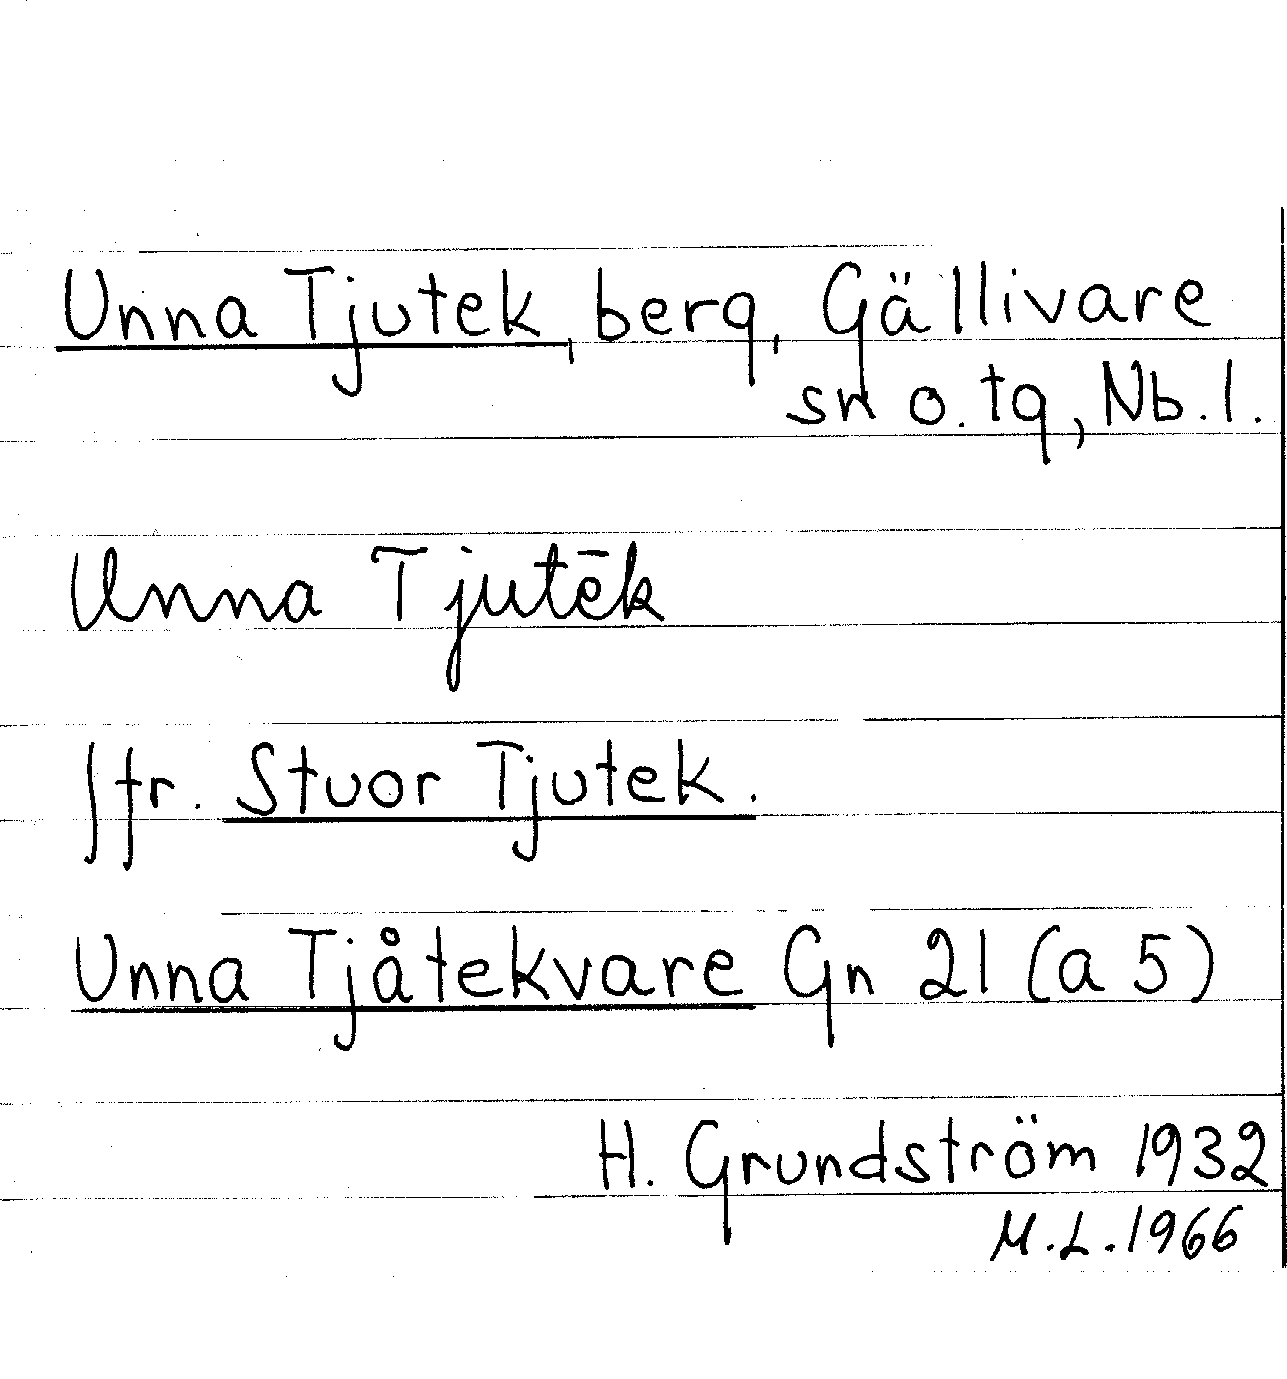 Unna Tjutek, berg, Gällivare
sn o. tg, Nb. l.
Unna Tjutēk
Jfr. Stuor Tjutek.
Unna Tjåtekvare Gn 21 (a 5)
H. Grundström 1932
M.L. 1966